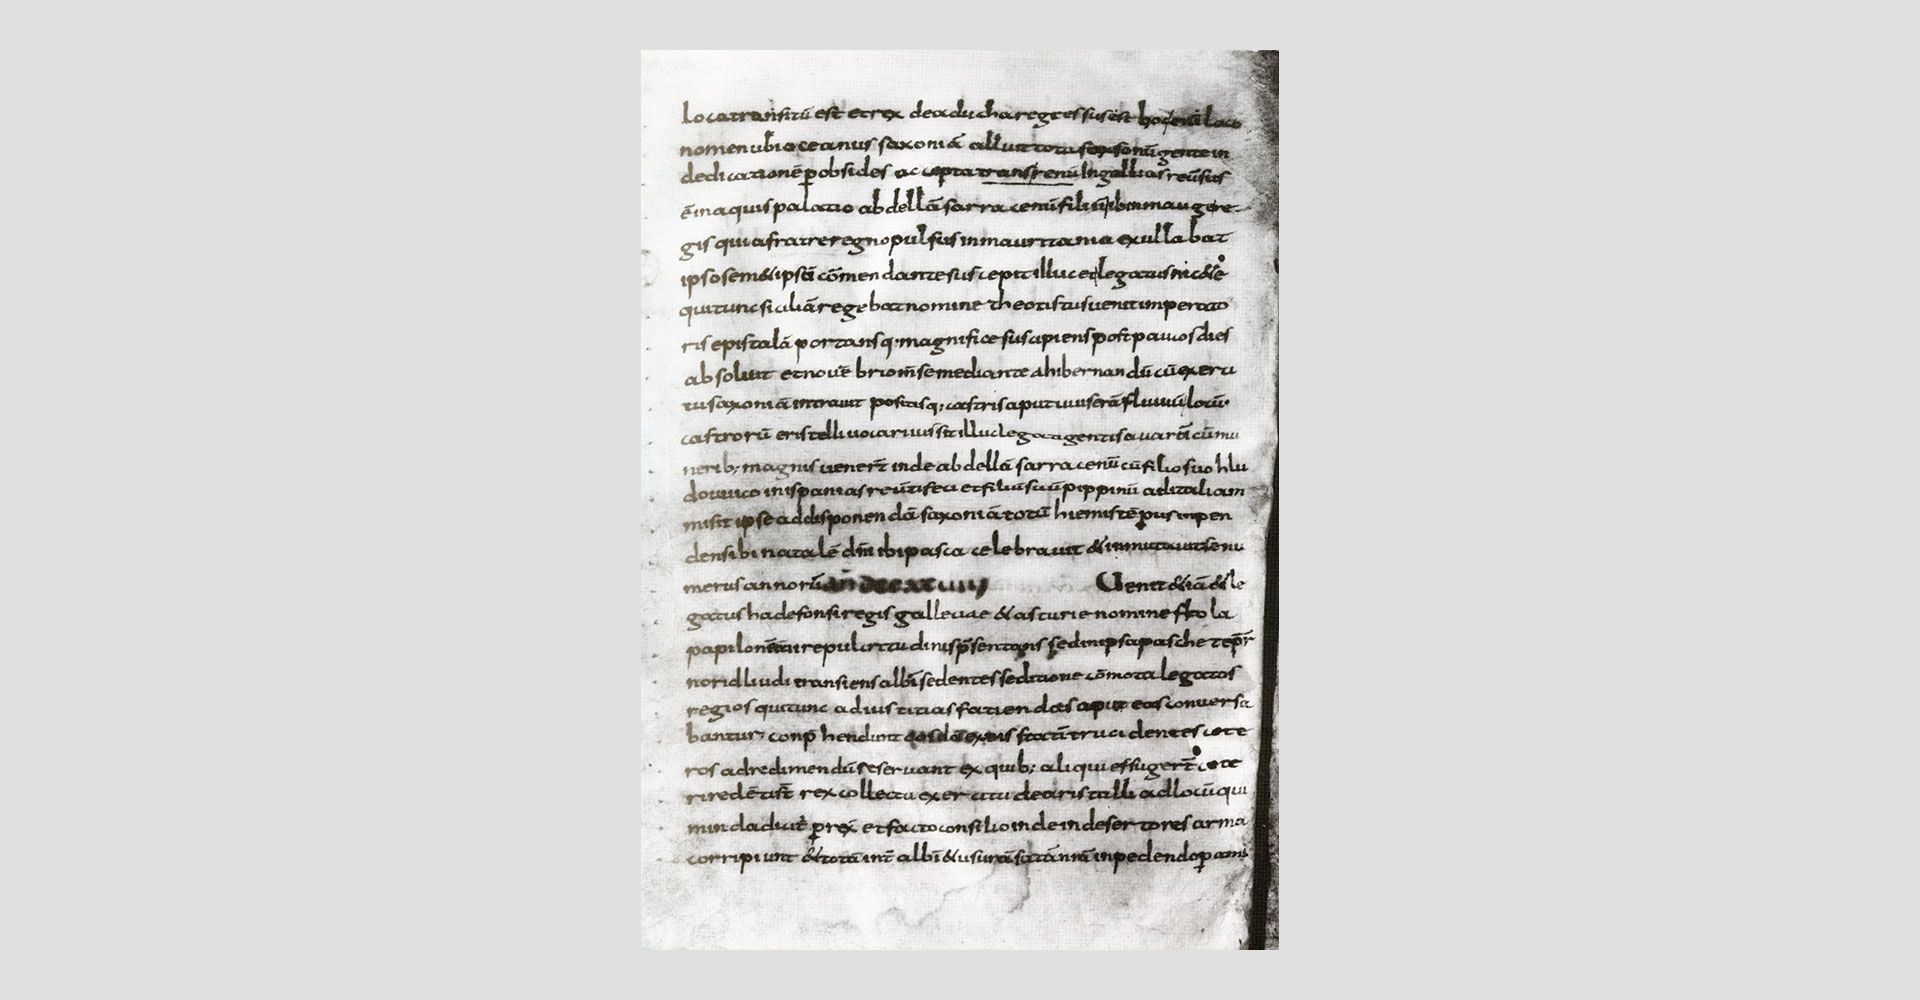 locatransitū est et rex de aduchare gressus est hoc enī loco
nomen ubi oceanus saxoniā alluit totā saxsonū gente in
dedicationē p obsides accepta trans renū In gallias reūsus
ē in aquis palatio abdellā sarracenū filiū ibinmauge re
gis qui a fratre regno pulsus in mauritania exullabat
ipso semet ipsū cōmendante suscepit illuc et legatus nicete
qui tunc siciliā regebat nomine theotistus uenit imperato
ris epistalā portans q; magnifice suscipiens post paucos dies
absoluit et nouēbrio mse mediante ahibernandū cū exerci
tu saxoniā intrauit positisq; castris aput uuiserā fluuiū locū
castrorū eristelli uocari iussit illuc legati gentis auarū cū mu
nerib; magnis uenert inde abdellā sarracenū cū filio suo hlu
douuico in ispanias reūti fecit et filiū suū pippinū ad italiam
misit ipse ad disponendā saxoniā totū hiemis tēpus inpen
dens ibi natalē dm ibi pasca celebrauit & inmutauit se nu
merus annorū an dccxcuiii Uenit & iā & le
gatus hadefonsi regis galleciae & asturie nomine frola
papilonē mire pulcritudinis psentans sed in ipsa pasche tepr
nordliudi transiens albī sedentes seditione cōmota legatos
regios qui tunc ad iustitias fatiendas aput eos conuersa
bantur conphendunt quosdā ex eis statī trucidentes cete
ros ad redimendū seseruant ex quib; aliqui effugert cete
ri redētist rex collectu exercitu de aristalli ad locū qui
minda dicit prex et facto consilio inde in desertores arma
corripiunt & totā int albī & usurā